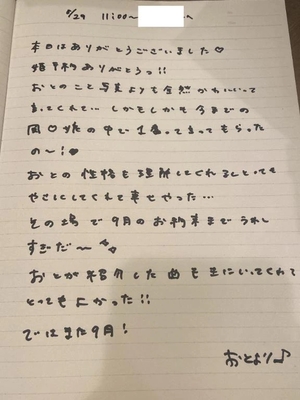 8/29 11:00〜 へ
本日はありがとうございました♡
姫予約ありがとうっ!!
おとのこと写真よりも全然かわいいって
言ってくれて… しかもしかも今までの
岡♡嬢の中で1番って言ってもらった
の〜!♥
おとの性格も理解してくれるしとっても
やさしくしてくれて幸せやった…
その場で9月のお約束までうれし
すぎだ〜
おとが紹介した曲も生にいてくれて
とってもよかった!!
ではまた9月!
おとより♪